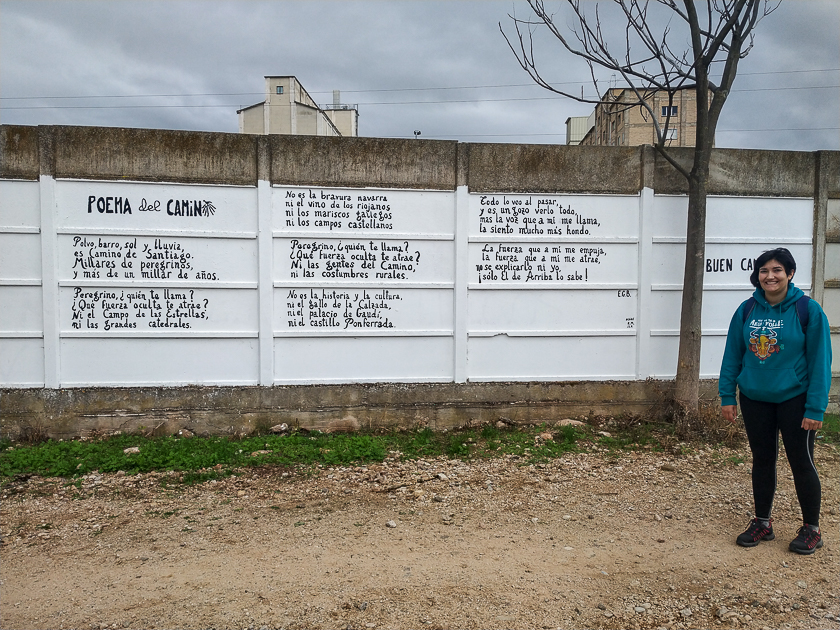 POEMA del CAMINO
Polvo, barro, sol y lluvia,
es Camino de Santiago.
Millares de peregrinos,
y más de un millar de años.
Peregrino, ¿quién te llama?
¿Qué fuerza oculta te atrae?
Ni el Campo de las Estrellas,
ni las grandes catedrales.
No es la bravura navarra
ni el vino de los riojanos
ni los mariscos gallegos
ni los campos castellanos
Peregrino, ¿quién te llama?
¿Qué fuerza oculta te atrae?
Ni las gentes del Camino,
ni las costumbres rurales.
No es la historia y la cultura,
ni el gallo de la Calzada,
ni el palacio de Gaudí,
ni el castillo Ponferrada.
Todo lo veo al pasar,
y es un gozo verlo todo,
mas la voz que a mí me llama,
la siento mucho más hondo.
La fuerza que a mí me empuja,
la fuerza que a mí me atrae,
no se explicarla ni yo,
¡sólo El de Arriba lo sabe!
E.G.B.
BUEN